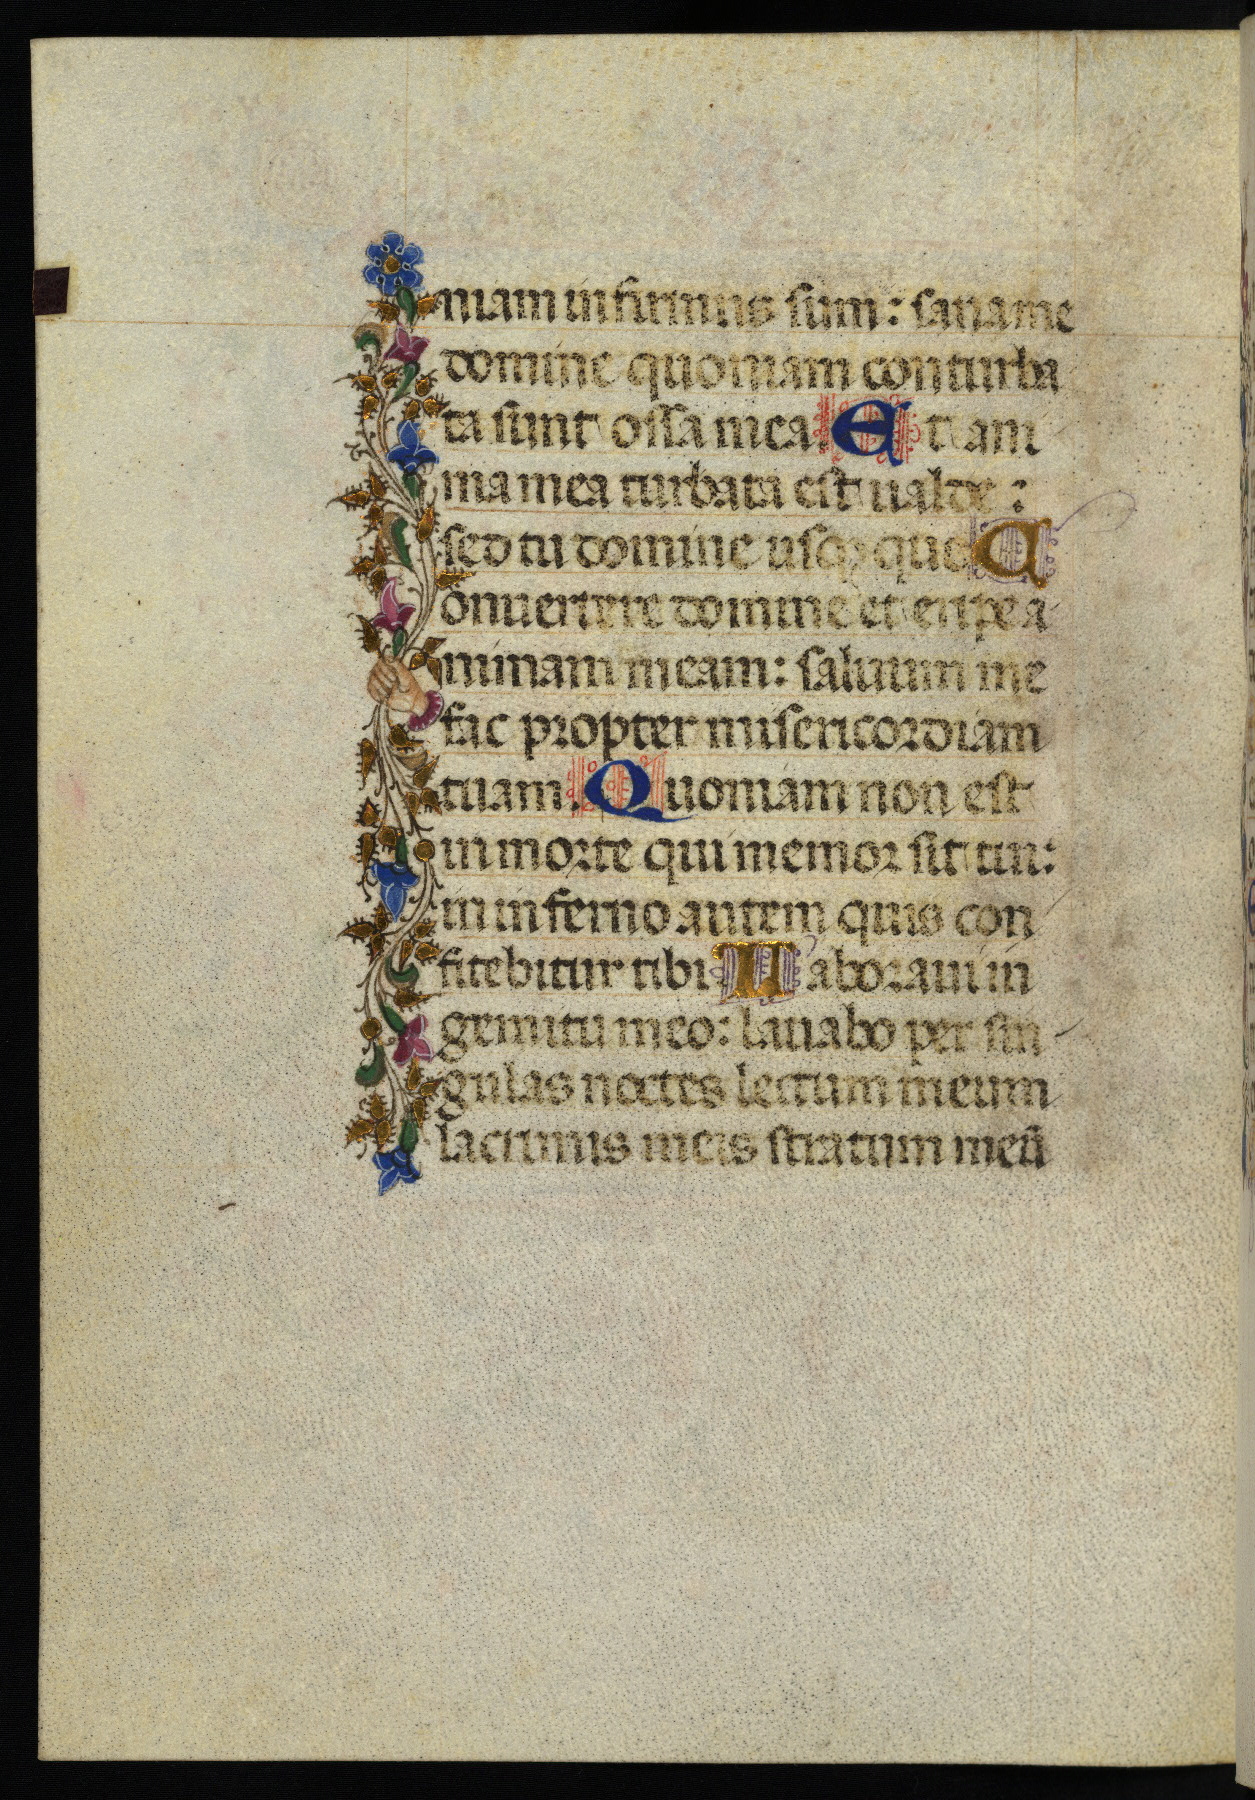 niam infirmus sum: sana me
domine quoniam conturba
ta sunt ossa mea. Et am
ma mea turbata est ualde:
sed tu domine usq; quo C
onuertere domine et eripe a
nimam meam: saluum me
fac propter misericordiam
tuam. Quoniam non est
in morte qui memor sit tui:
in inferno autem quis con
fitebitur tibi. Laboraui in
gemitu meo: lauabo per sin
gulas noctes lectum meum
lacrimis meis stratum meū